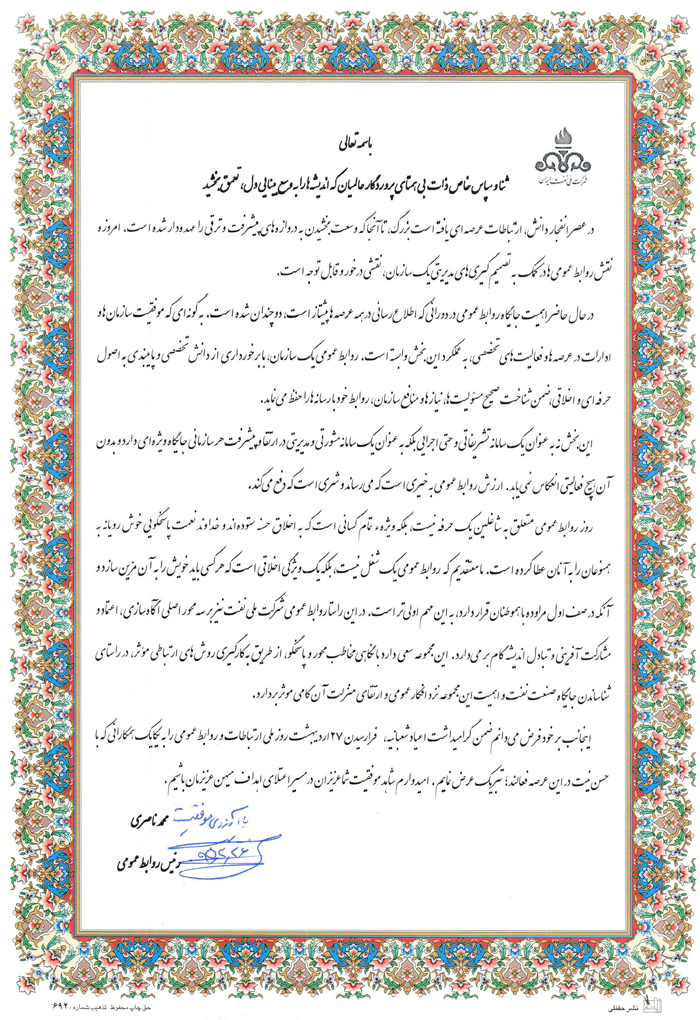 باسمه تعالی
شرکت ملی نفت ایران
ثنا و سپاس خاص ذات بی همتای پروردگار عالمیان که اندیشه ها را به وسع بینایی دل، تعمق بخشید
در عصر انفجار دانش، ارتباطات عرصه ای یافته است بزرگ، تا آنجا که وسعت بخشیدن به دروازه های پیشرفت و ترقی را عهده دار شده است. امروزه
نقش روابط عمومی ها در کمک به تصمیم گیری های مدیریتی یک سازمان، نقشی درخور و قابل توجه است.
در حال حاضر اهمیت جایگاه روابط عمومی در دورانی که اطلاع رسانی در همه عرصه ها پیشتاز است، دو چندان شده است. به گونه ای که موفقیت سازمان ها و
ادارات در عرصه ها و فعالیت های تخصصی، به عملکرد این بخش وابسته است. روابط عمومی یک سازمان، با برخورداری از دانش تخصصی و پایبندی به اصول
حرفه ای و اخلاقی، ضمن شناخت صحیح مسئولیت ها، نیازها و منافع سازمان، روابط خود با رسانه ها را حفظ می نماید.
این بخش نه به عنوان یک سامانه تشریفاتی و حتی اجرایی بلکه به عنوان یک سامانه مشورتی و مدیریتی در ارتقا و پیشرفت هر سازمانی جایگاه ویژه ای دارد و بدون
آن هیچ فعالیتی انعکاس نمی یابد. ارزش روابط عمومی به خیری است که می رساند و شری است که دفع می کند.
روز روابط عمومی متعلق به شاغلین یک حرفه نیست، بلکه ویژه ء تمام کسانی است که به اخلاق حسنه ستوده اند و خداوند نعمت پاسخگویی خوش رویانه به
همنوعان را به آنان عطا کرده است. ما معتقدیم که روابط عمومی یک شغل نیست، بلکه یک ویژگی اخلاقی است که هر کسی باید خویش را به آن مزین سازد و
آنکه در صف اول مراوده با هموطنان قرار دارد، به این مهم اولی تر است. در این راستا روابط عمومی شرکت ملی نفت نیز بر سه محور اصلی آگاه سازی، اعتماد و
مشارکت آفرینی و تبادل اندیشه گام بر می دارد. این مجموعه سعی دارد با نگاهی مخاطب محور و پاسخگو، از طریق به کارگیری روش های ارتباطی مؤثر، در راستای
شناساندن جایگاه صنعت نفت و اهمیت این مجموعه نزد افکار عمومی و ارتقای منزلت آن گامی موثر بردارد.
اینجانب بر خود فرض می دانم ضمن گرامیداشت اعیاد شعبانیه، فرارسیدن ۲۷ اردیبهشت روز ملی ارتباطات و روابط عمومی را به یکایک همکارانی که با
حسن نیت در این عرصه فعالند؛ تبریک عرض نمایم. امیدوارم شاهد موفقیت شما عزیزان در مسیر اعتلای اهداف میهن عزیزمان باشیم.
با آرزوی موفقیت
محمد ناصری
رئیس روابط عمومی
نشر حقیقی
حق چاپ محفوظ. تذهیب شماره: ۶۹۲